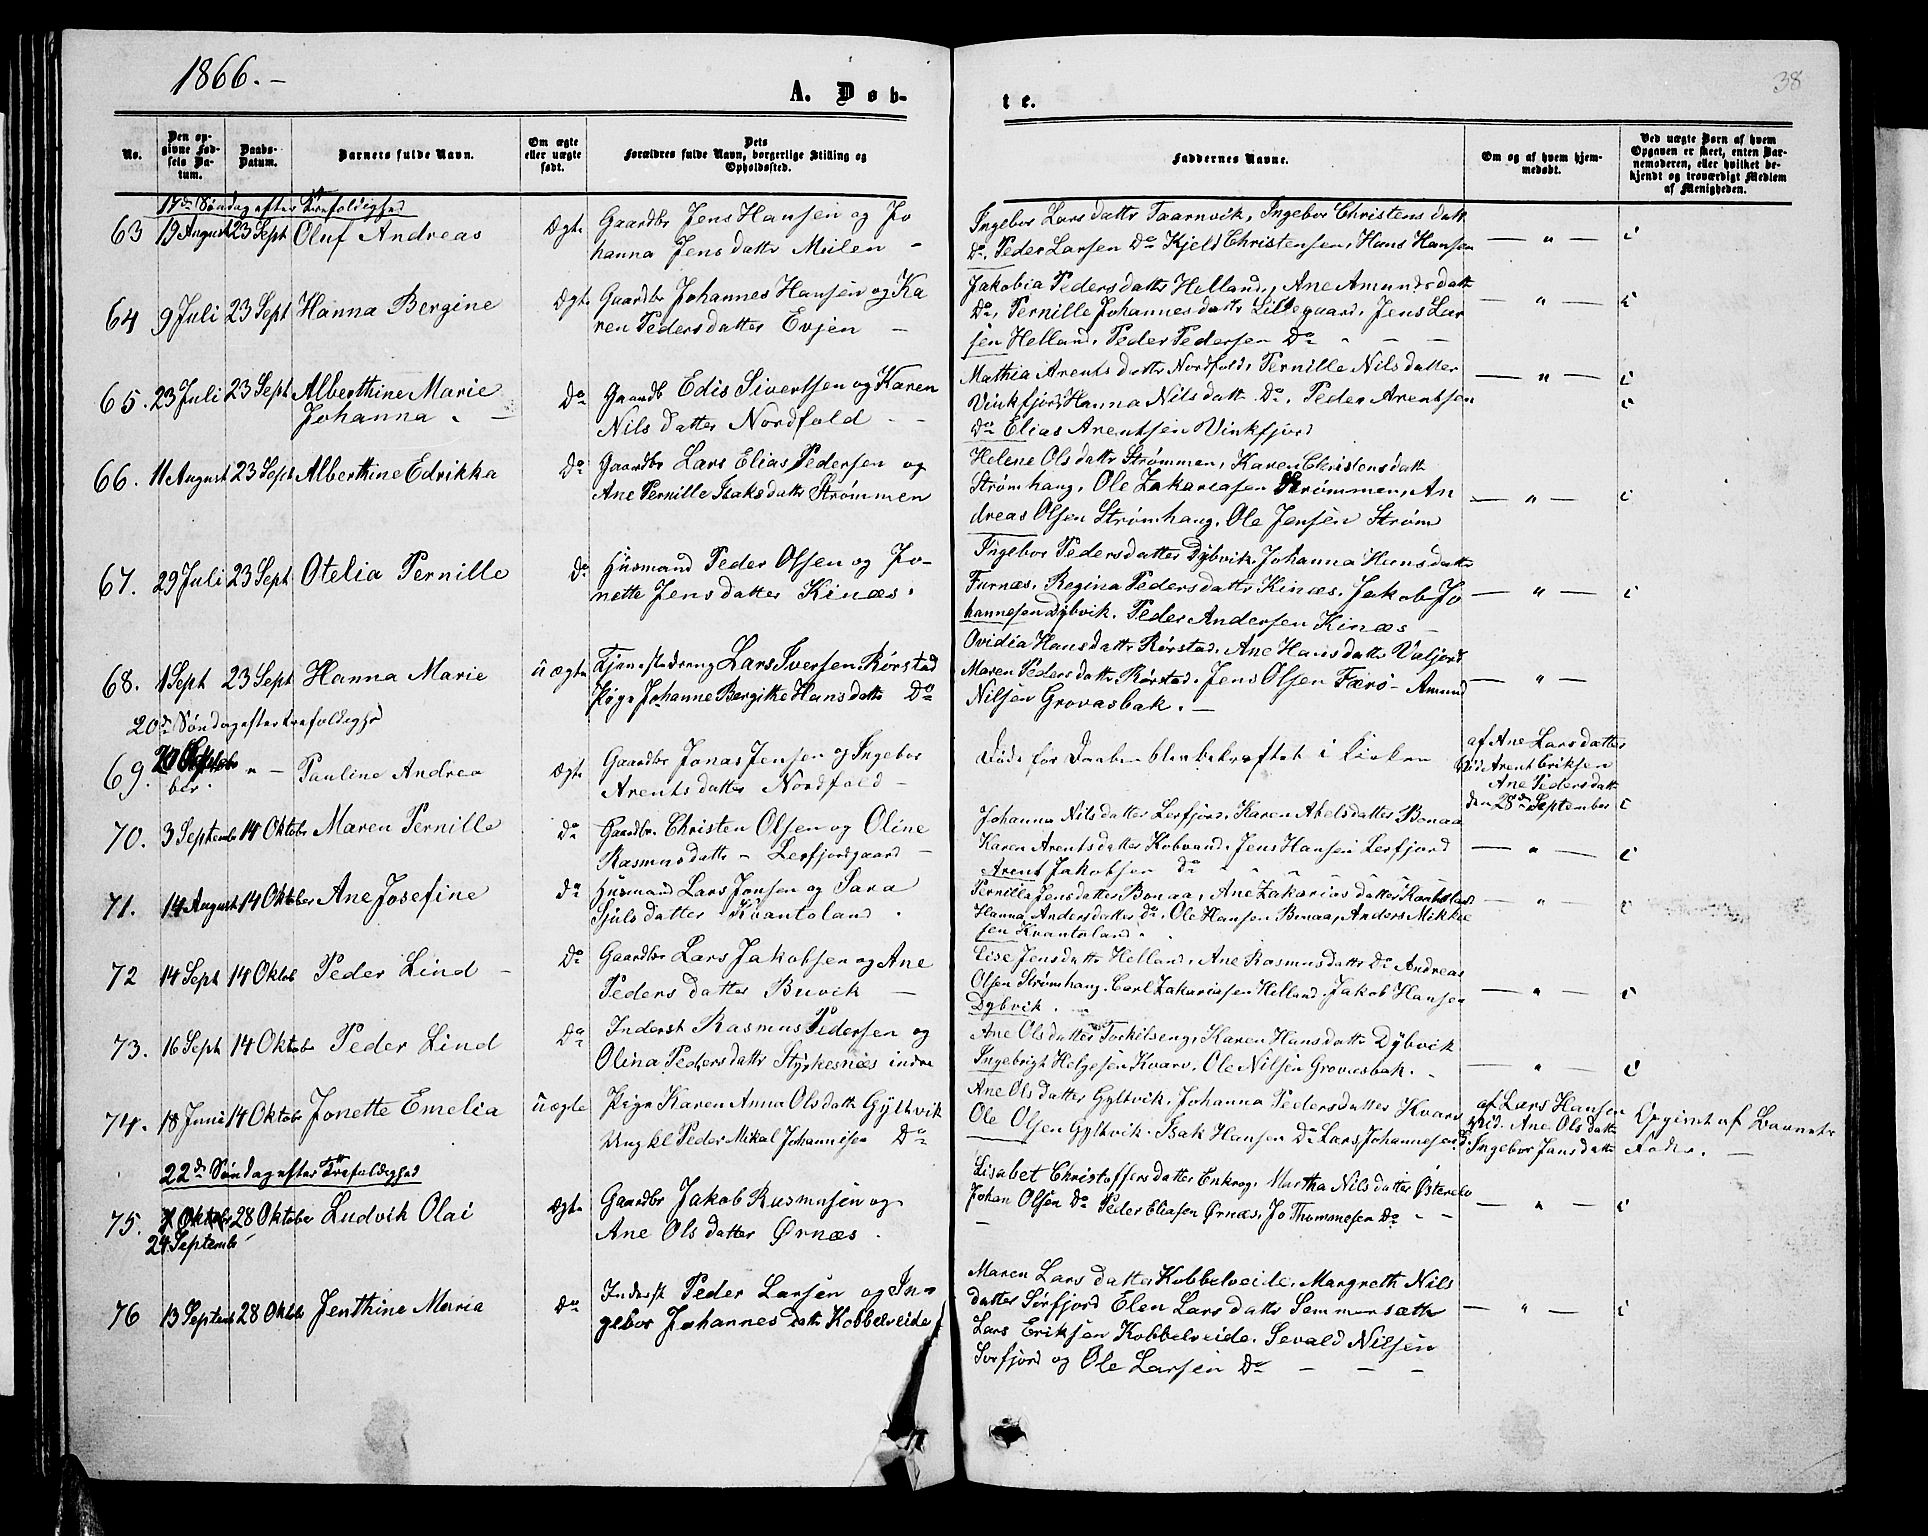 1866.-
38
A. Døb-
te.
No.
Den op-
givne Fød-
sels Da-
tum.
Daabs-
Datum.
Barnets fulde Navn.
Om ægte
eller uægte
født.
Dets
Forældres fulde Navn, borgerlige Stilling og
Opholdssted.
Faddernes Navne.
Om og af hvem hjem-
medøbt.
Ved uægte Børn af hvem
Opgaven er skeet, enten Bar-
nemoderen, eller hvilket be-
kjendt og troværdigt Medlem
af Menigheden.
17de Søndag efter Trefoldighed
63 19 August 23 Sept Oluf Andreas Ægte Gaardbr Jens Hansen og Jo
hanna Jensdatter Mulen -
Ingebor Larsdatter Taarnvik, Ingebor Christensdatt
Do, Peder Larsen Do Kjeld Christensen, Hans Hansen — " —
64 9 Juli 23 Sept Hanna Bergine Ægte Gaardbr Johannes Hansen og Ka
ren Pedersdatter Evjen —
Jakobia Pedersdatter Helland, Ane Amundsdatt
Do, Pernille Johannesdatter Lillegaard, Jens Lar — " —
sen Helland, Peder Pedersen Do
65. 23 Juli 23 Sept Alberthine Marie
Johanna. —
Do Gaardb Edis Sivertsen og Karen
Nilsdatter Nordfold - -
Mathia Arentsdatter Nordfold, Pernille Nilsdatter — " —
Vinkfjord Hanna Nilsdatt Do, Peder Arentsen
Do Elias Arentsen Vinkfjord
66. 11 August 23 Sept Alberthine Edrikka Do Gaardbr Lars Elias Pedersen og
Ane Pernille Isaksdatter Strømmen
Helene Olsdatter Strømmen, Karen Christensdatt
Strømhaug, Ole Zakariasen Strømmen, An — " —
dreas Olsen Strømhaug, Ole Jensen Strøm
67. 29 Juli 23 Sept Otelia Pernille Do Husmand Peder Olsen og Jo-
nette Jensdatter Kinæs.
Ingebor Pedersdatter Dybvik, Johanna Hansdatter
Furnæs, Regina Pedersdatter Kinæs, Jakob Jo — " —
hannesen Dybvik, Peder Andersen Kinæs —
68. 1 Sept 23 Sept Hanna Marie uægte Tjenestedreng Lars Iversen Rørstad
Pige Johanne Bergitte Hansdatter Do
Ovidia Hansdatter Rørstad, Ane Hansdatter Valjord
Maren Pedersdatter Rørstad, Jens Olsen Færø - Amund — " —
Nilsen Grovasbak. —
20de Søndag efter Trefoldighed
69. ber. " — Pauline Andrea Ægte Gaardbr Jonas Jensen og Ingebor
Arentsdatter Nordfold -
Døde før Daaben blev bekræftet i Kirken
af Ane Larsdatter
Vid. Arent Eriksen
Ane Pedersdatt
den 28de September
70. 3 Septembr 14 Oktober Maren Pernille Do Gaardbr. Christen Olsen og Oline
Rasmusdatter - Lerfjordgaard —
Johanna Nilsdatter Lerfjord, Karen Abelsdatter Bonaa
Karen Arentsdatter Kobvand, Jens Hansen Lerfjord — " —
Arent Jakobsen do
71. 14 August 14 Oktober Ane Josefine Do Husmand Lars Jonsen og Sara
Sjulsdatter Kvantoland.
Pernille Jensdatter Bonaa, Ane Zakariasdatter — " —
Hanna Andersdatter do, Ole Hansen Bonaa, Anders Mikkel
sen Kvantoland
72 14 Sept 14 Oktob Peder Lind - Do Gaardbr Lars Jakobsen og Ane
Pedersdatter Buvik —
Elise Jensdatter Helland, Ane Rasmusdatter Do Andreas
Olsen Strømhaug, Carl Zakariasen Helland, Jakob Hansen — " —
Dybvik.
73. 16 Sept 14 Oktober Peder Lind Do Inderst Rasmus Pedersen og
Olina Pedersdatter Styrkesnes indre
Ane Olsdatter Torkilseng, Karen Hansdatter Dybvik
Ingebrigt Helgesen Kvarv, Ole Nilsen Grovasbak. — " —
74. 18 Juni 14 Oktober Jonette Emelia uægte Pige Karen Anna Olsdatter Gyltvik
Ungkl Peder Mikal Johannesen Do
Ane Olsdatter Gyltvik, Johanna Pedersdatter Kvarv
Ole Olsen Gyltvik, Isak Hansen Do Lars Johannesen d.
af Lars Hansen
Vid. Ane Olsdatter
Ingebor Jansdatter
Opgivet af Barnets
Fader. —
22de Søndag efter Trefoldighed
75. 7 Oktober 28 Oktober Ludvik Olai Ægte Gaardbr Jakob Rasmusen og
24 Septemb Ane Olsdatter Ørnæs.
Lisabet Christoffersdatter Enkrog, Martha Nilsdatter
Johan Olsen Do Peder Eliasen Ørnæs, Jo Thommesen Do — " —
76 13 Septemb 28 Oktob Jenthine Maria Do Inderst Peder Larsen og In-
gebor Johannesdatter Kobbelveide
Maren Larsdatter Kobbelveide, Margreth Nils
datter Sørfjord Elen Larsdatter Semmersæth — " —
Lars Eriksen Kobbelveide, Sevald Nilsen
Sørfjord og Ole Larsen Do — — —